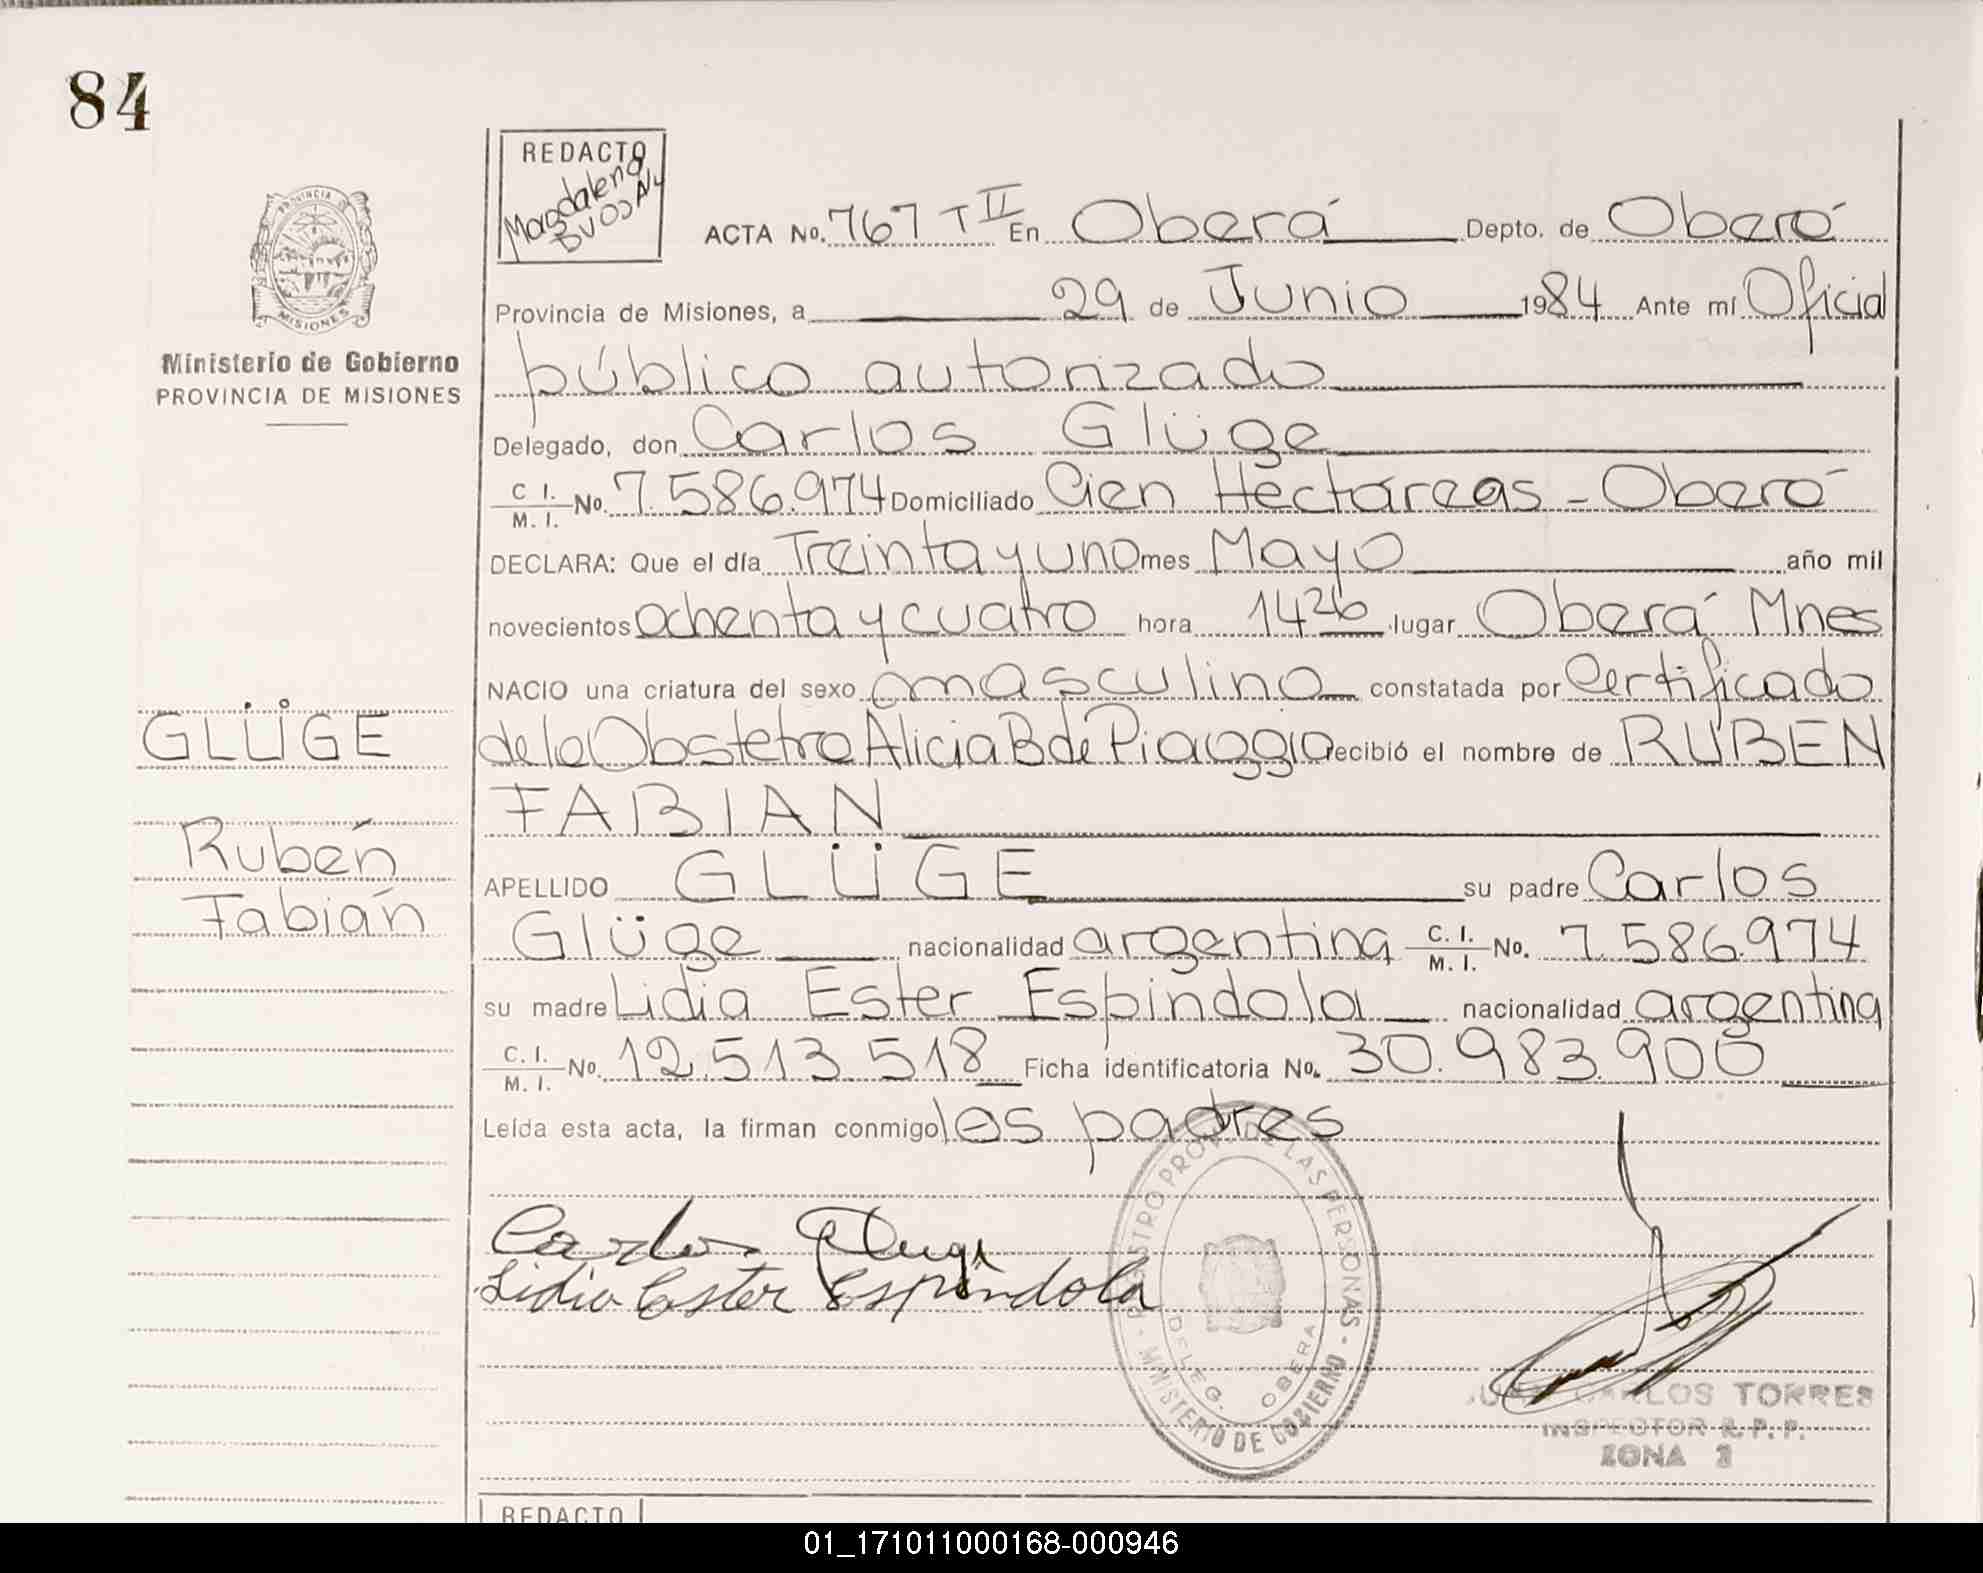 84
PROVINCIA
MISIONES
Ministerio de Gobierno
PROVINCIA DE MISIONES
GLÜGE
Rubén
Fabián
REDACTO
Magdalena
ACTA No. 767 T II En Oberá Depto. de Oberá
Provincia de Misiones, a 29 de Junio 1984 Ante mí Oficial
público autorizado
Delegado, don Carlos Glüge
C. I. / M. I. No. 7.586.974 Domiciliado Cien Hectáreas - Oberá
DECLARA: Que el día Treinta y uno mes Mayo año mil
novecientos ochenta y cuatro hora 14 26 lugar Oberá Mnes
NACIO una criatura del sexo masculino constatada por Certificado
de la Obstetra Alicia B de Piaggio recibió el nombre de RUBEN
FABIAN
APELLIDO GLÜGE su padre Carlos
Glüge nacionalidad argentina C. I. / M. I. No. 7.586.974
su madre Lidia Ester Espindola nacionalidad argentina
C. I. / M. I. No. 12.513.518 Ficha identificatoria No. 30.983.900
Leída esta acta, la firman conmigo los padres
Carlos Gluge
Lidia Ester Espindola
REGISTRO PROV. DE LAS PERSONAS - MINISTERIO DE GOBIERNO -
DELEG. OBERA
JUAN CARLOS TORRES
INSPECTOR R.P.P.
ZONA 2
REDACTO
01_171011000168-000946